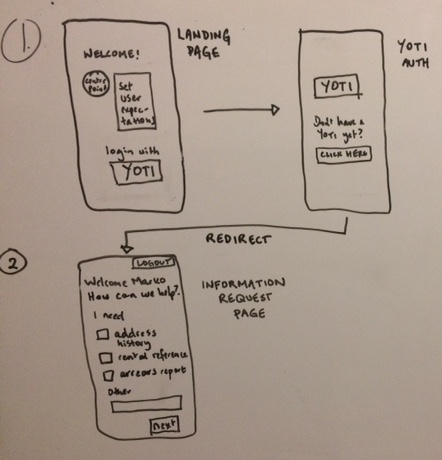 1.
WELCOME!
centre
point
Set
User
expec-
tations
login with
YOTI
LANDING
PAGE
YOTI
AUTH
YOTI
Don't have a
YOTI yet?
CLICK HERE
REDIRECT
2
LOGOUT
Welcome Marko
How can we help?
I need
address
history
rental reference
arrears report
Other
next
INFORMATION
REQUEST
PAGE